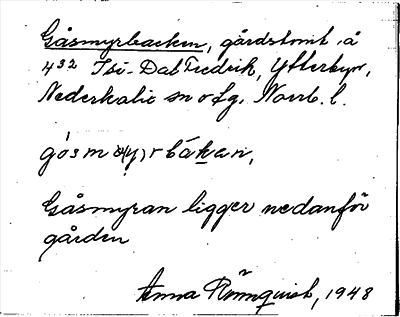 Gåsmyrbacken, gårdstomt å
4³² Isi-Dal Fredrik, Ytterbyn,
Nederkalix sn o fg. Norrb. l.
gósm
Gåsmyran ligger nedanför
gården
Anna Rönnquist, 1948